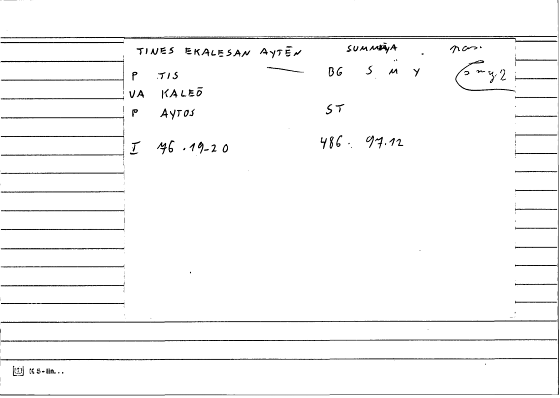 TINES EKALESAN AYTĒN SUMMĒYA . pos.
P TIS BG S M Y
VA KALEŌ
P AYTOS ST
I 76.19-20 486. 97.12
K 5-lin...